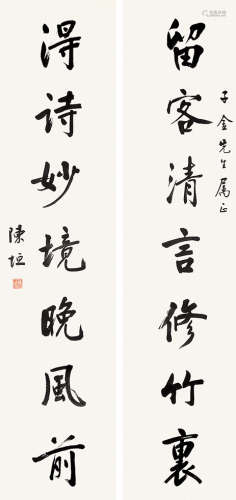 子金先生属正
留客清言修竹裏
得诗妙境晚風前
陳垣